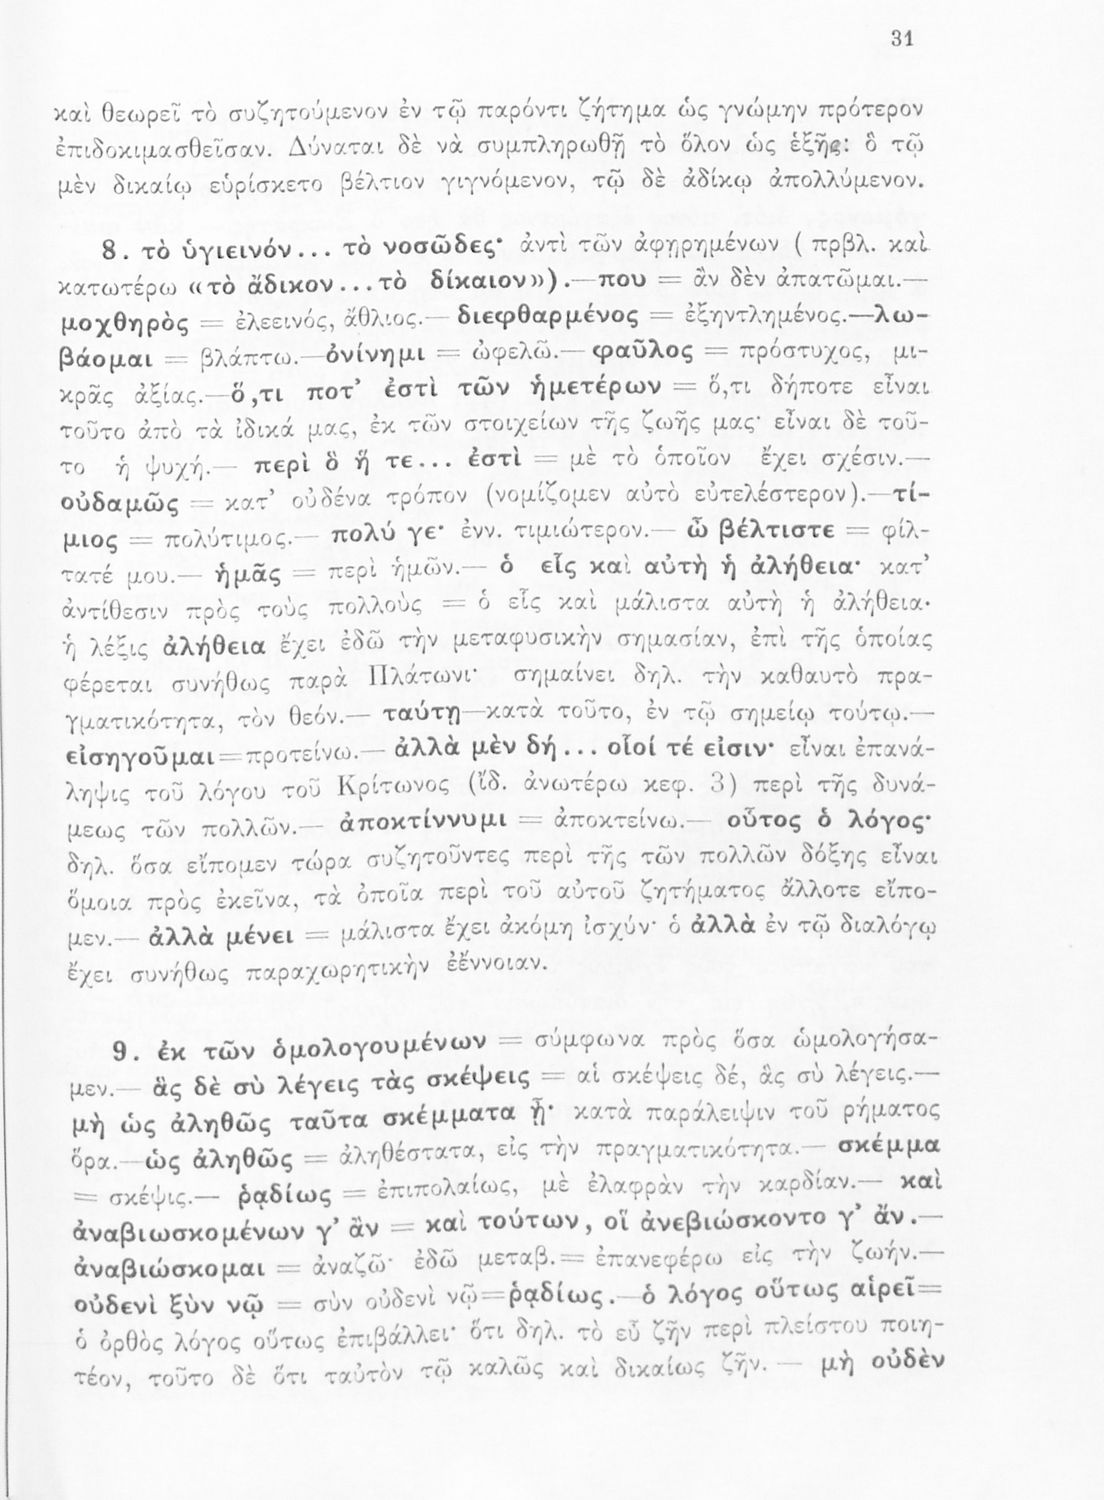 31
καὶ θεωρεῖ τὸ συζητούμενον ἐν τῷ παρόντι ζήτημα ὡς γνώμην πρότερον
ἐπιδοκιμασθεῖσαν. Δύναται δὲ νὰ συμπληρωθῇ τὸ ὅλον ὡς ἑξῆς: ὃ τῷ
μὲν δικαίῳ εὑρίσκετο βέλτιον γιγνόμενον, τῷ δὲ ἀδίκῳ ἀπολλύμενον.
8. τὸ ὑγιεινόν... τὸ νοσῶδες· ἀντὶ τῶν ἀφῃρημένων ( πρβλ. καὶ
κατωτέρω «τὸ ἄδικον...τὸ δίκαιον»).—που = ἂν δὲν ἀπατῶμαι.—
μοχθηρὸς = ἐλεεινός, ἄθλιος.— διεφθαρμένος = ἐξηντλημένος.—λω-
βάομαι = βλάπτω.—ὀνίνημι = ὠφελῶ.— φαῦλος = πρόστυχος, μι-
κρᾶς ἀξίας.—ὅ,τι ποτ' ἐστὶ τῶν ἡμετέρων = ὅ,τι δήποτε εἶναι
τοῦτο ἀπὸ τὰ ἰδικά μας, ἐκ τῶν στοιχείων τῆς ζωῆς μας· εἶναι δὲ τοῦ-
το ἡ ψυχή.— περὶ ὃ ἥ τε... ἐστὶ = μὲ τὸ ὁποῖον ἔχει σχέσιν.—
οὐδαμῶς = κατ' οὐδένα τρόπον (νομίζομεν αὐτὸ εὐτελέστερον).—τί-
μιος = πολύτιμος.— πολύ γε· ἐνν. τιμιώτερον.— ὦ βέλτιστε = φίλ-
τατέ μου.— ἡμᾶς = περὶ ἡμῶν.— ὁ εἷς καὶ αὐτὴ ἡ ἀλήθεια· κατ'
ἀντίθεσιν πρὸς τοὺς πολλοὺς = ὁ εἷς καὶ μάλιστα αὐτὴ ἡ ἀλήθεια·
ἡ λέξις ἀλήθεια ἔχει ἐδῶ τὴν μεταφυσικὴν σημασίαν, ἐπὶ τῆς ὁποίας
φέρεται συνήθως παρὰ Πλάτωνι· σημαίνει δηλ. τὴν καθαυτὸ πρα-
γματικότητα, τὸν θεόν.— ταύτῃ—κατὰ τοῦτο, ἐν τῷ σημείῳ τούτῳ.—
εἰσηγοῦμαι=προτείνω.— ἀλλὰ μὲν δή... οἷοί τέ εἰσιν· εἶναι ἐπανά-
ληψις τοῦ λόγου τοῦ Κρίτωνος (ἰδ. ἀνωτέρω κεφ. 3) περὶ τῆς δυνά-
μεως τῶν πολλῶν.— ἀποκτίννυμι = ἀποκτείνω.— οὗτος ὁ λόγος·
δηλ. ὅσα εἴπομεν τώρα συζητοῦντες περὶ τῆς τῶν πολλῶν δόξης εἶναι
ὅμοια πρὸς ἐκεῖνα, τὰ ὁποῖα περὶ τοῦ αὐτοῦ ζητήματος ἄλλοτε εἴπο-
μεν.— ἀλλὰ μένει = μάλιστα ἔχει ἀκόμη ἰσχύν· ὁ ἀλλὰ ἐν τῷ διαλόγῳ
ἔχει συνήθως παραχωρητικὴν ἐἔννοιαν.
9. ἐκ τῶν ὁμολογουμένων = σύμφωνα πρὸς ὅσα ὡμολογήσα-
μεν.— ἃς δὲ σὺ λέγεις τὰς σκέψεις = αἱ σκέψεις δέ, ἃς σὺ λέγεις.—
μὴ ὡς ἀληθῶς ταῦτα σκέμματα ᾖ· κατὰ παράλειψιν τοῦ ρήματος
ὅρα.—ὡς ἀληθῶς = ἀληθέστατα, εἰς τὴν πραγματικότητα.— σκέμμα
= σκέψις.— ῥᾳδίως = ἐπιπολαίως, μὲ ἐλαφρὰν τὴν καρδίαν.— καὶ
ἀναβιωσκομένων γ' ἂν = καὶ τούτων, οἳ ἀνεβιώσκοντο γ' ἄν.—
ἀναβιώσκομαι = ἀναζῶ· ἐδῶ μεταβ.= ἐπανεφέρω εἰς τὴν ζωήν.—
οὐδενὶ ξὺν νῷ = σὺν οὐδενὶ νῷ=ῥᾳδίως.—ὁ λόγος οὕτως αἱρεῖ=
ὁ ὀρθὸς λόγος οὕτως ἐπιβάλλει· ὅτι δηλ. τὸ εὖ ζῆν περὶ πλείστου ποιη-
τέον, τοῦτο δὲ ὅτι ταὐτὸν τῷ καλῶς καὶ δικαίως ζῆν. — μὴ οὐδὲν